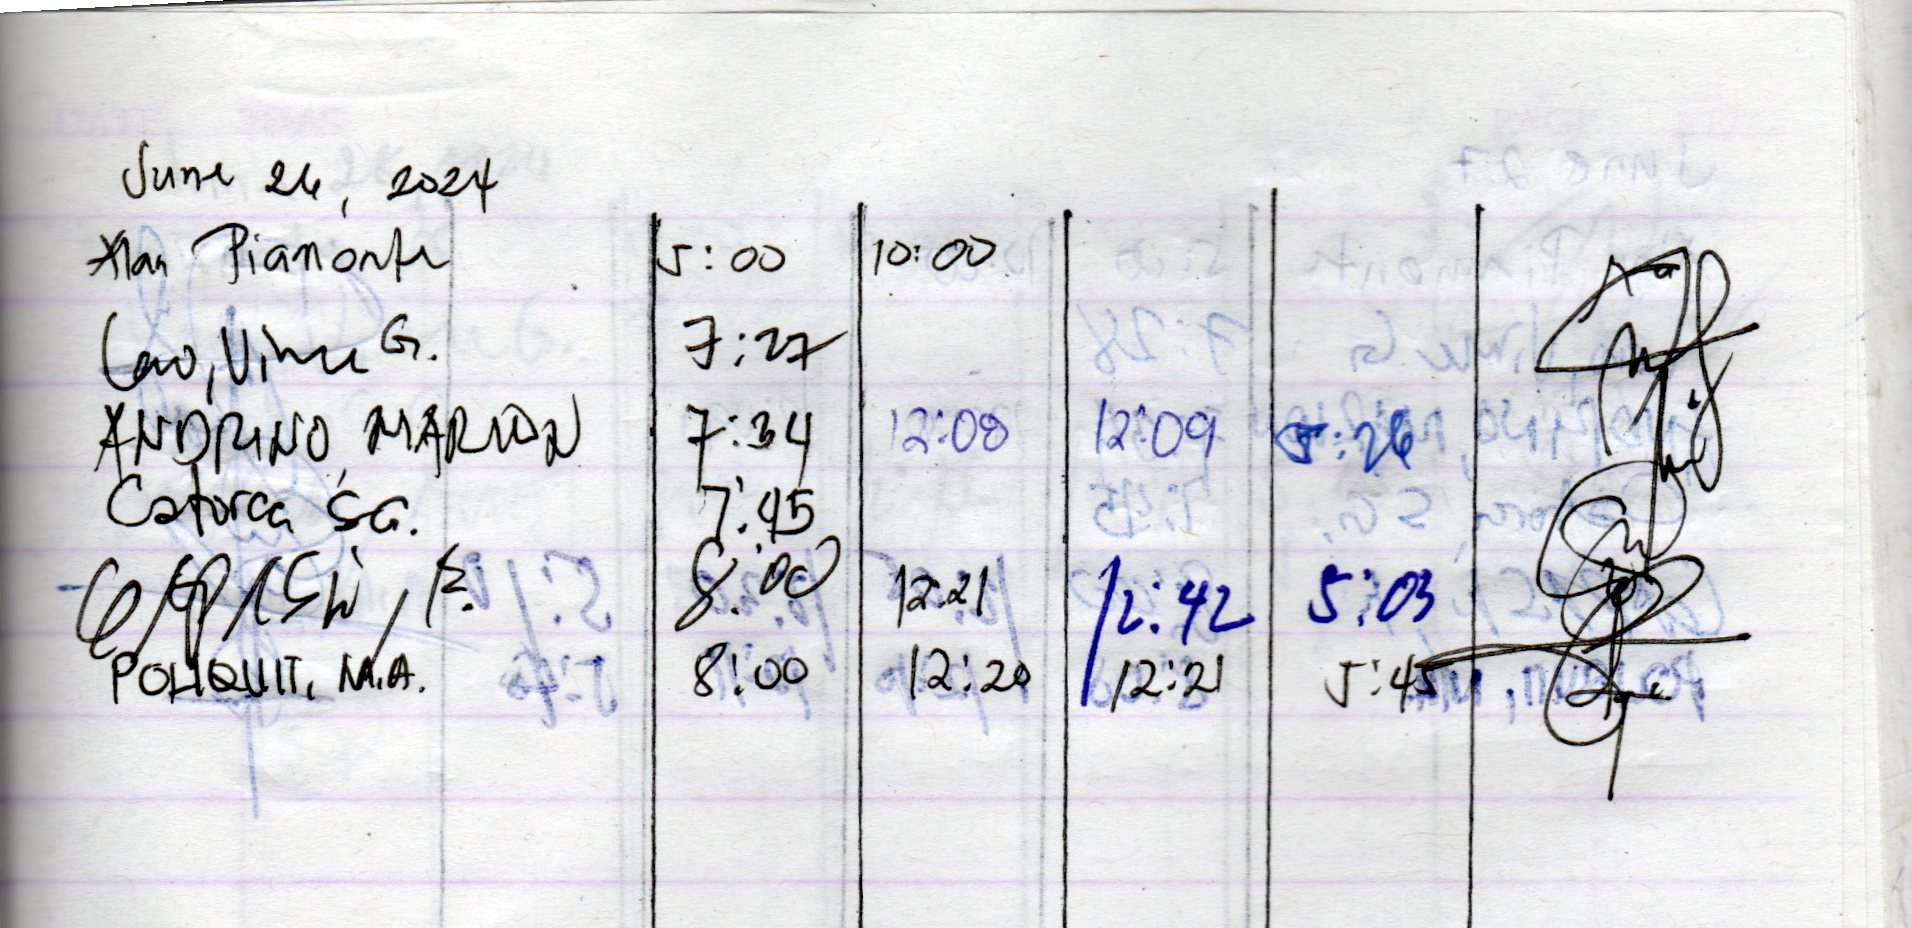 June 26, 2024
Alan Piamonte 5:00 10:00
Cao, Vince G. 7:27
ANDRINO, MARION 7:34 12:08 12:09 5:26
Catorca SG. 7:45
8:00 12:21 12:42 5:03
POLIQUIT, M.A. 8:00 12:20 12:21 5:45